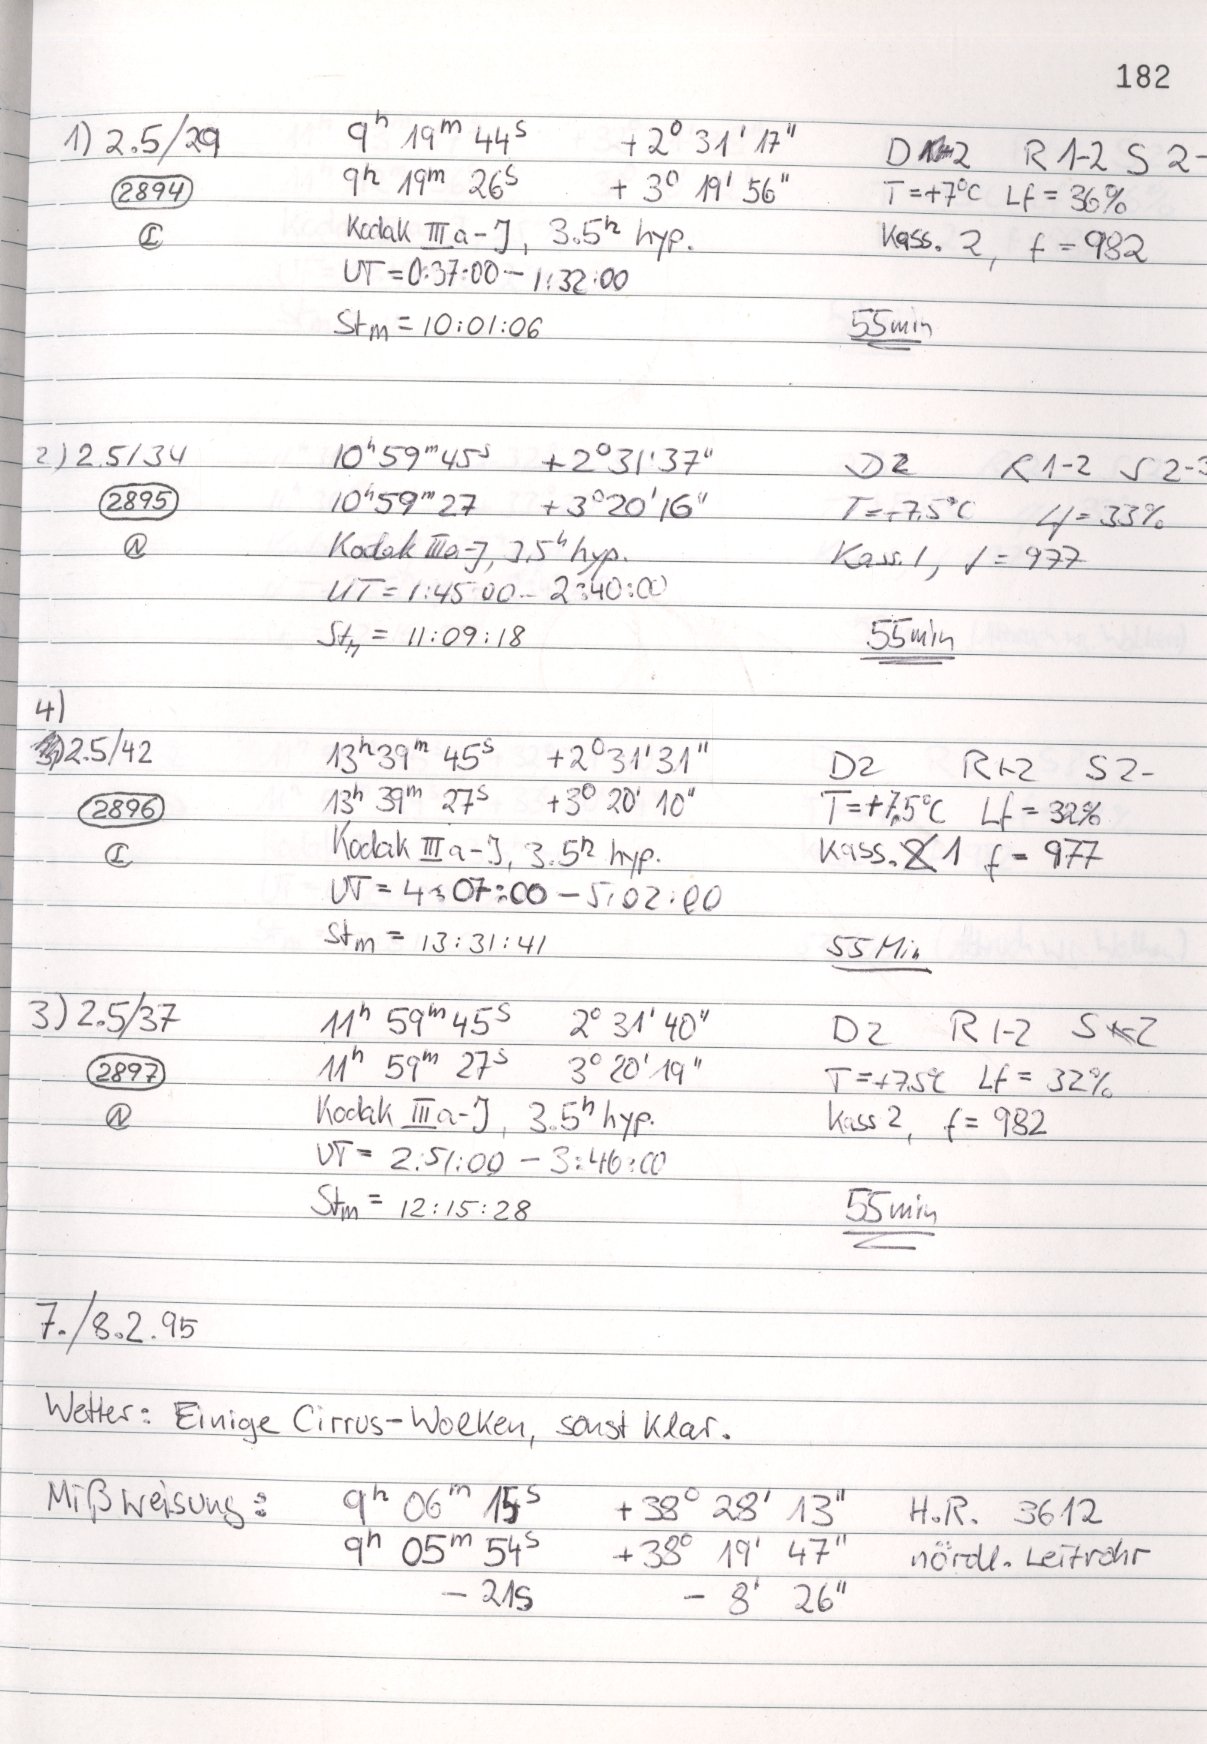 182
1) 2.5/29 9h 19m 44s +2° 31' 17" D 2 R 1-2 S 2-
2894 9h 19m 26s + 3° 19' 56" T=+7°C Lf = 36%
Kodak IIIa-J, 3.5h hyp. Kass. 2, f = 982
UT = 0:37:00 – 1:32:00
Stm = 10:01:06 55min
2) 2.5/34 10h 59m 45s +2° 31' 37" D2 R 1-2 S 2-3
2895 10h 59m 27 +3° 20' 16" T=+7.5°C Lf = 33%
N Kodak IIIa-J, 3.5h hyp. Kass. 1, f = 977
UT = 1:45:00 – 2:40:00
Stm = 11:09:18 55min
4)
2.5/42 13h 39m 45s +2° 31' 31" D2 R 1-2 S 2-
2896 13h 39m 27s +3° 20' 10" T=+7,5°C Lf = 32%
Kodak IIIa-J, 3.5h hyp. Kass. 2 1 f = 977
UT = 4:07:00 – 5:02:00
Stm = 13:31:41 55 Min
3) 2.5/37 11h 59m 45s 2° 31' 40" D2 R 1-2 S 2
2897 11h 59m 27s 3° 20' 19" T=+7.5°C Lf = 32%
N Kodak IIIa-J, 3.5h hyp. Kass 2, f = 982
UT = 2:51:00 – 3:46:00
Stm = 12:15:28 55min
7./8.2.95
Wetter: Einige Cirrus-Wolken, sonst klar.
Mißweisung: 9h 06m 15s +38° 28' 13" H.R. 3612
9h 05m 54s +38° 19' 47" nördl. Leitrohr
– 21s – 8' 26"